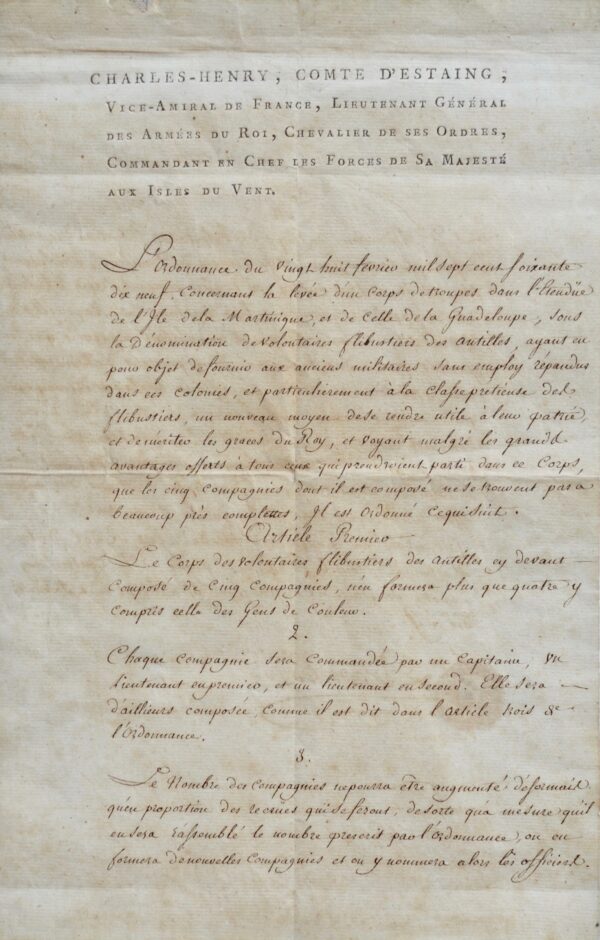 CHARLES-HENRY, COMTE D'ESTAING,
VICE-AMIRAL DE FRANCE, LIEUTENANT GÉNÉRAL
DES ARMÉES DU ROI, CHEVALIER DE SES ORDRES,
COMMANDANT EN CHEF LES FORCES DE SA MAJESTÉ
AUX ISLES DU VENT.
L'ordonnance du vingt huit fevrier mil sept cent soixante
dix neuf, Concernant la levée d'un Corps de troupes dans l'Etendüe
de l'Ile de la Martinique, et de celle de la Guadeloupe, sous
la Dénomination de Volontaires flibustiers des antilles, ayant eu
pour objet de fournir aux anciens militaires sans employ répandus
dans ces colonies, et particulièrement à la classe prétieuse des
flibustiers, un nouveau moyen de se rendre utile à leur patrie,
et de meriter les graces du Roy, et voyant malgré les grands
avantages offerts à tous ceux qui prendroient parti dans ce Corps,
que les cinq Compagnies dont il est composé ne se trouvent pas a
beaucoup près complettes, Il est ordonné ce qui suit.
Article Premier
Le Corps des volontaires flibustiers des antilles cy devant
composé de Cinq Compagnies, n'en formera plus que quatre y
compris celle des Gens de Couleur.
2.
Chaque Compagnie sera Commandée par un Capitaine, un
lieutenant en premier, et un lieutenant en second. Elle sera
d'ailleurs composée, comme il est dit dans l'article trois de
l'ordonnance.
3.
Le Nombre des Compagnies ne pourra être augmenté désormais
qu'en proportion des recrües qui se feront, de sorte qu'a mesure qu'il
en sera rassemblé le nombre prescrit par l'ordonnance, on en
formera de nouvelles Compagnies et on y nommera alors les officiers.